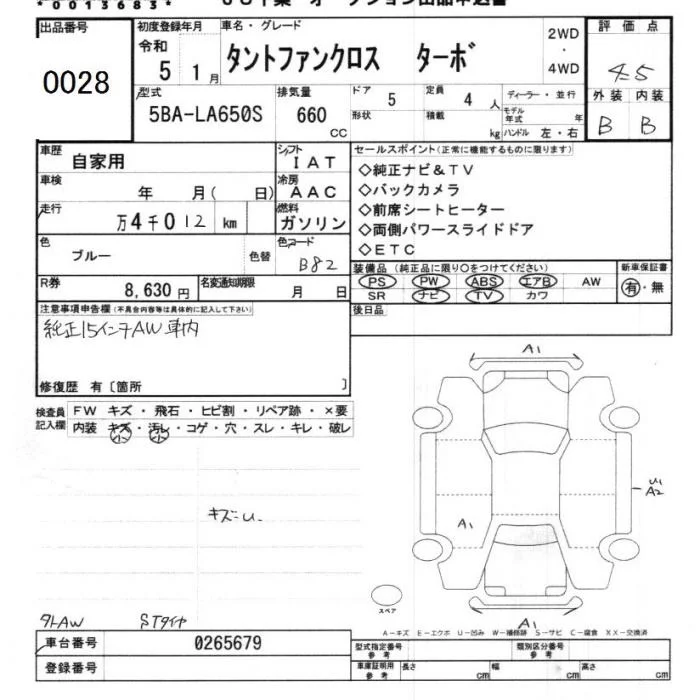 *0013683*
出品番号
0028
初度登録年月
令和
5 1月
車名・グレード
タントファンクロス ターボ
2WD
・
4WD
評価点
4.5
外装 内装
B B
型式
5BA-LA650S
排気量
660
CC
ドア
5
形状
定員
4 人
積載
kg
ディーラー・並行
モデル年式 年
ハンドル 左・右
車歴
自家用
シフト
IAT
車検
年 月( 日)
冷房
AAC
走行
万4千012 km
燃料
ガソリン
色
ブルー
色替
色コード
B82
R券
8,630円
名変通知期限
月 日
セールスポイント(正常に機能するものに限ります)
◇純正ナビ&TV
◇バックカメラ
◇前席シートヒーター
◇両側パワースライドドア
◇ETC
装備品(純正品に限り○をつけてください)
PS PW ABS エアB AW
SR ナビ TV カワ
新車保証書
有・無
後日品
注意事項申告欄(不具合内容等は具体的に記入して下さい)
純正15インチAW車内
修復歴 有〔箇所 〕
検査員
記入欄
FW キズ・飛石・ヒビ割・リペア跡・×要
内装 キズ・汚レ・コゲ・穴・スレ・キレ・破レ
小 小
キズ=U
A1
A1
U1
A2
A1
スペア
A-キズ E-エクボ U-凹み W-補修跡 S-サビ C-腐食 XX-交換済
タトAW STタイヤ
車台番号
0265679
登録番号
型式指定番号
参考
類別区分番号
参考
車庫証明用
参考
長さ cm 幅 cm 高さ cm